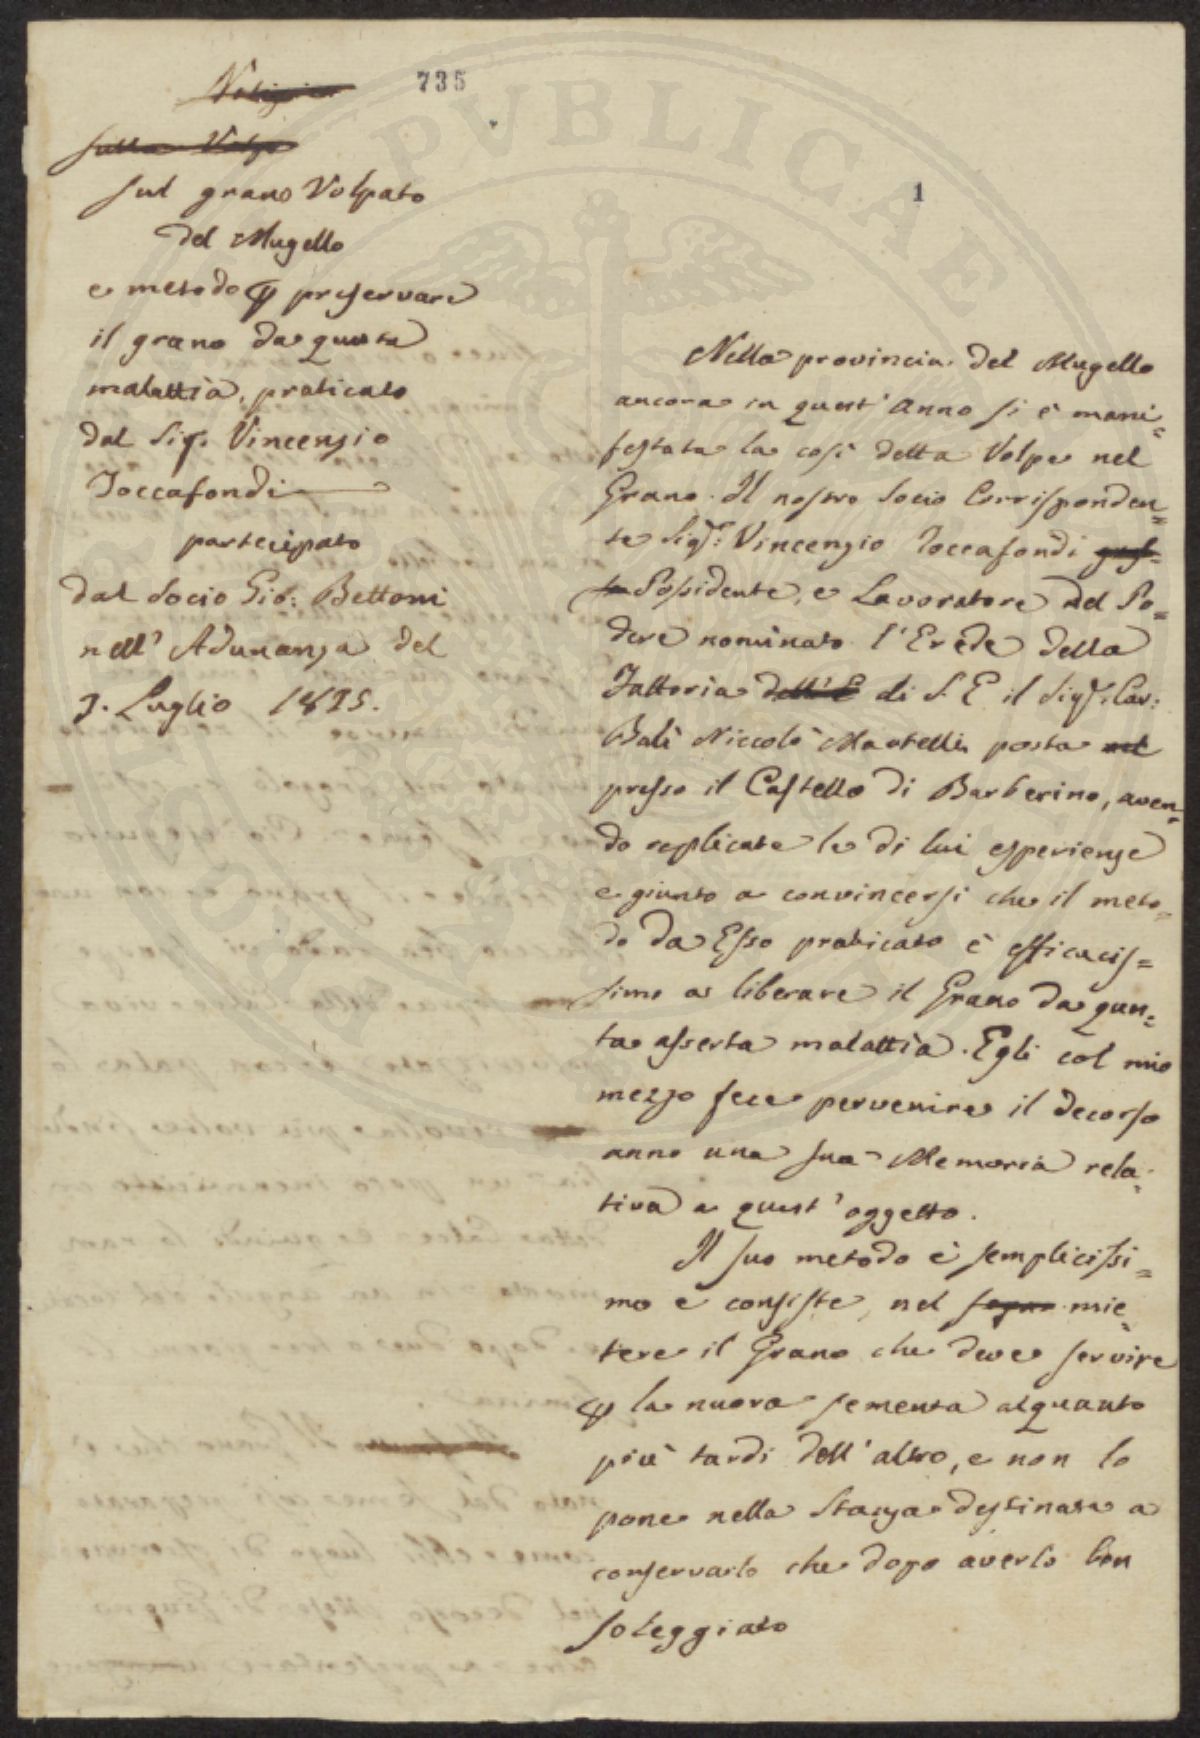 735
1
Notizie
sulla Volpe
sul grano Volpato
del Mugello
e metodo p preservare
il grano da questa
malattia, praticato
dal Sigr. Vincenzio
Toccafondi
partecipato
dal Socio Gio: Bettoni
nell' Adunanza del
3. Luglio 1825.
Nella provincia del Mugello
ancora in quest' anno si è mani=
festata la così detta Volpe nel
Grano. Il nostro Socio Corrisponden=
te Sigr: Vincenzio Toccafondi
Possidente, e Lavoratore nel Po=
dere nominato l'Erede della
Fattoria dell' E di S. E il Sigr: Cav:
Balì Niccolò Martelli posta nel
presso il Castello di Barberino, aven=
do replicate le di lui esperienze
e giunto a convincersi che il meto=
do da Esso praticato è efficacis=
simo a liberare il Grano da ques=
ta asserta malattia. Egli col mio
mezzo fece pervenire il decorso
anno una sua Memoria rela=
tiva a quest' oggetto.
Il suo metodo è semplicissi=
mo e consiste, nel mie=
tere il Grano che deve servire
p la nuova sementa alquanto
più tardi dell' altro, e non lo
pone nella Stanza destinata a
conservarlo che dopo averlo ben
soleggiato
PVBLICAE